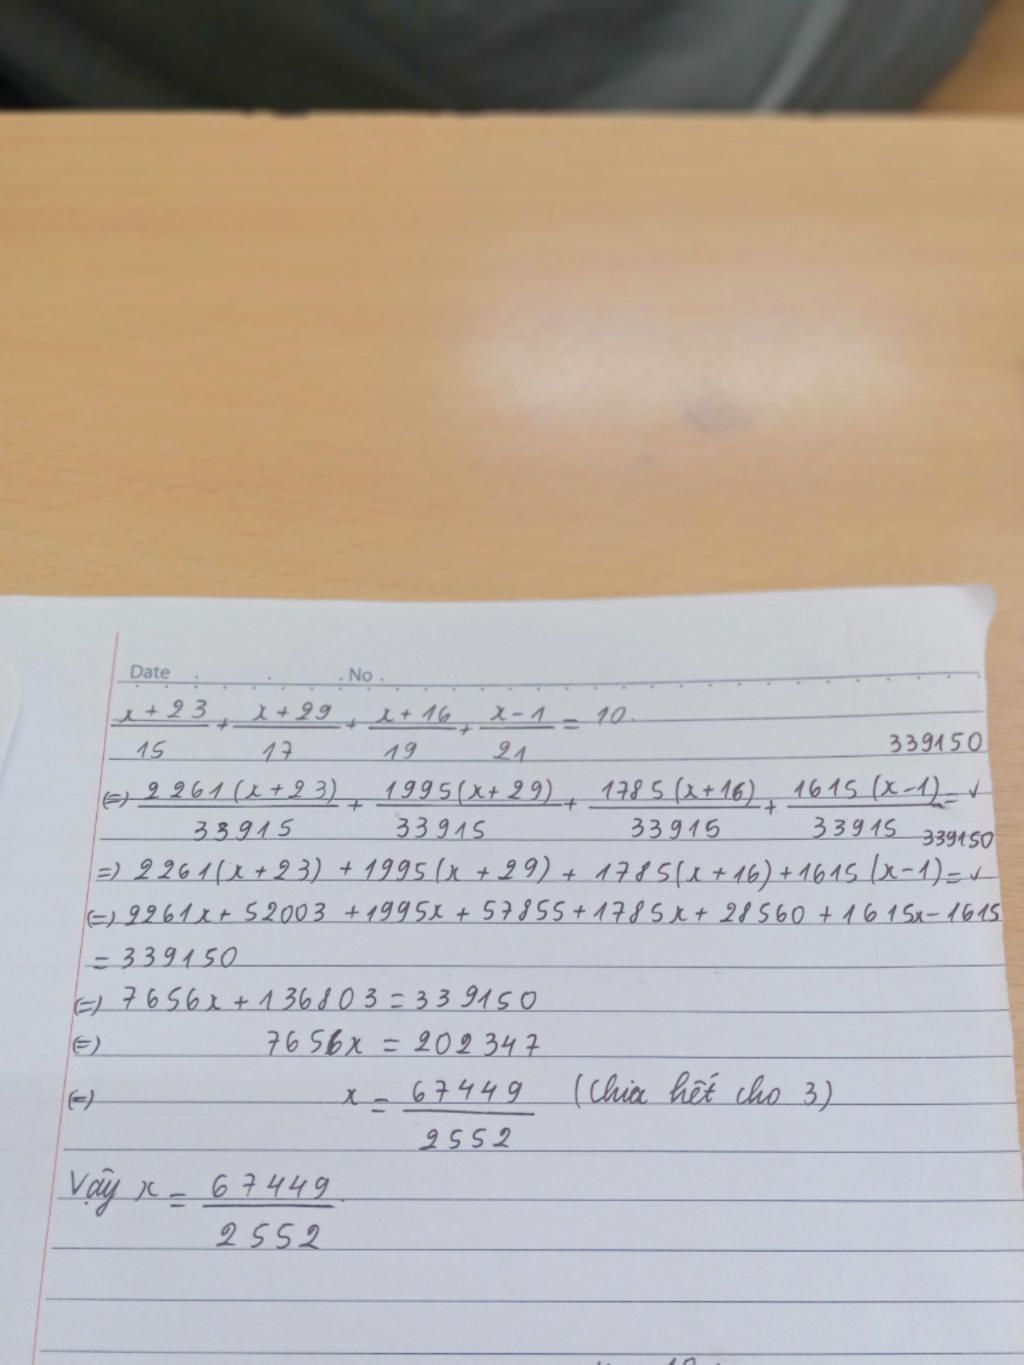 Date . . . No .
x+23/15 + x+29/17 + x+16/19 + x-1/21 = 10.
339150
(=) 2261(x+23)/33915 + 1995(x+29)/33915 + 1785(x+16)/33915 + 1615(x-1)/33915 = ✓
339150
=) 2261(x+23) + 1995(x+29) + 1785(x+16) + 1615(x-1) = ✓
(=) 2261x + 52003 + 1995x + 57855 + 1785x + 28560 + 1615x - 1615
= 339150
(=) 7656x + 136803 = 339150
(=) 7656x = 202347
(=) x = 67449/2552 (Chia hết cho 3)
Vậy x = 67449/2552.